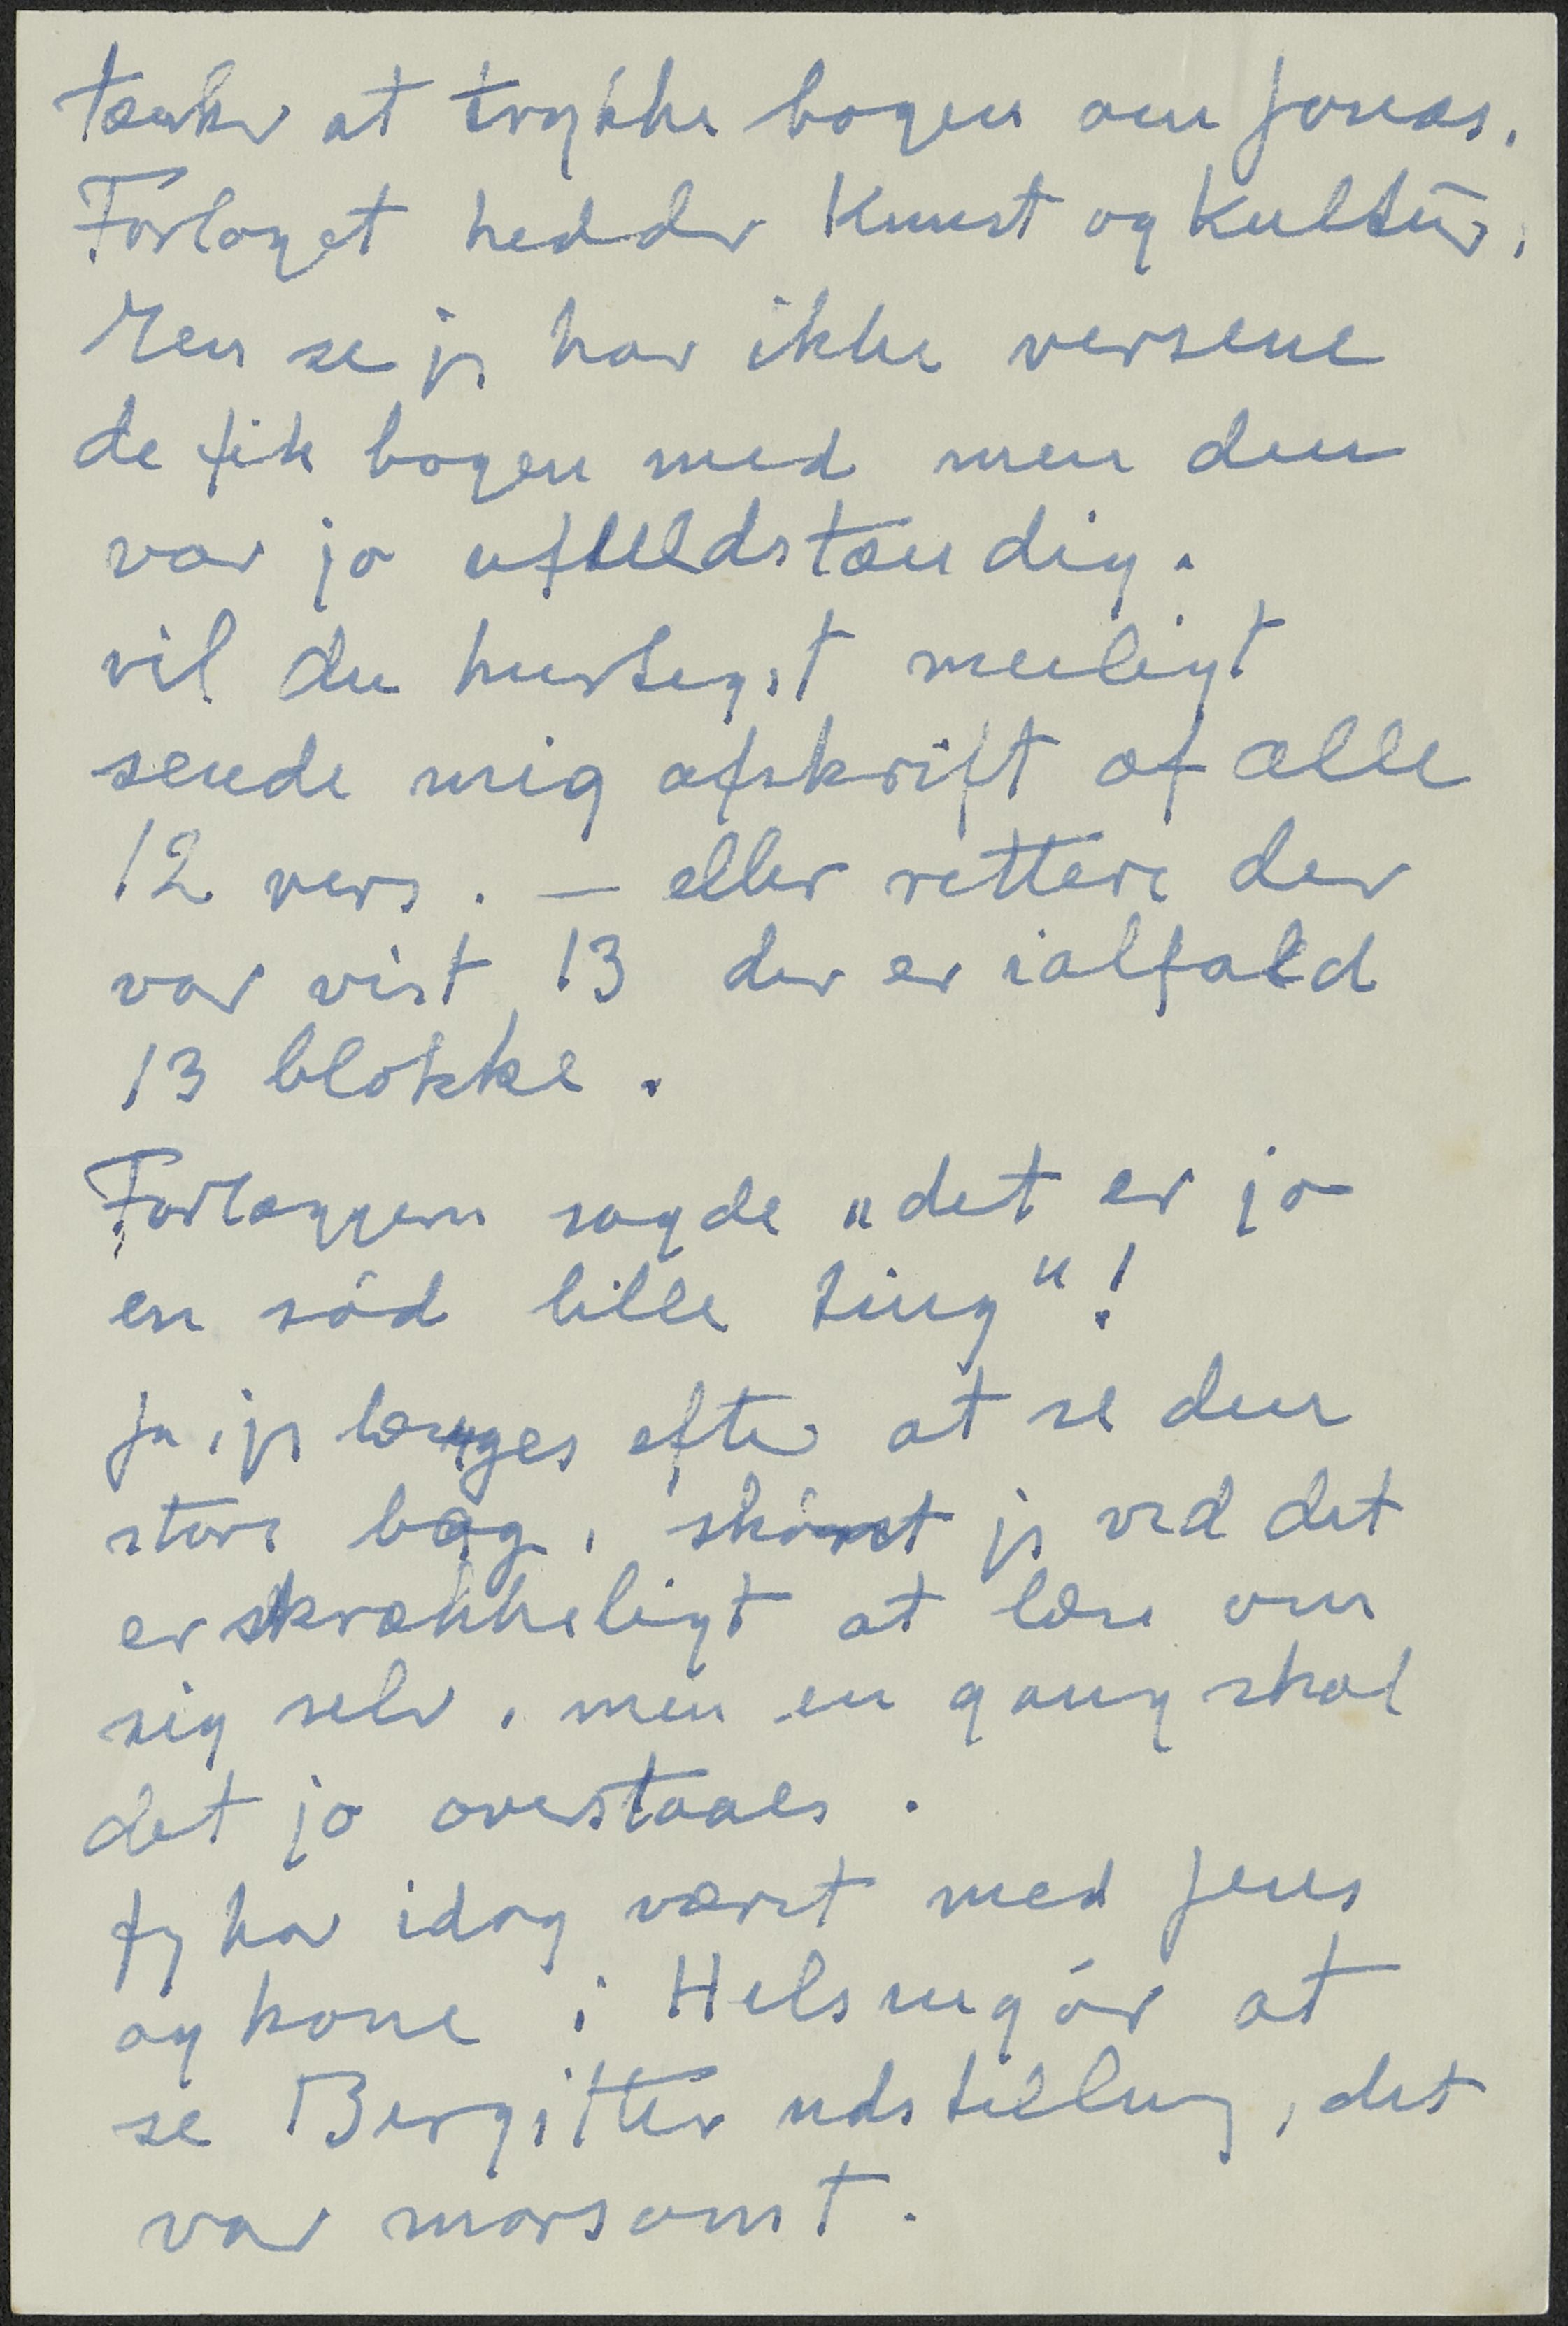 tænker at trykke bogen om Jonas.
Forlaget hedder Kunst og Kultur.
Men se jeg har ikke versene
de fik bogen med men den
var jo ufuldstændig.
vil du hurtigst muligt
sende mig afskrift af alle
12 vers. — eller rettere der
var vist 13 der er ialfald
13 blokke.
Forlæggeren sagde „det er jo
en sød lille ting"!
Ja, jeg længes efter at se den
store bog, skønt jeg ved det
er skrækkeligt at læse om
sig selv, men en gang skal
det jo overstaaes.
Jeg har idag været med Jens
og kone i Helsingør at
se Bergitter udstilling, det
var morsomt.